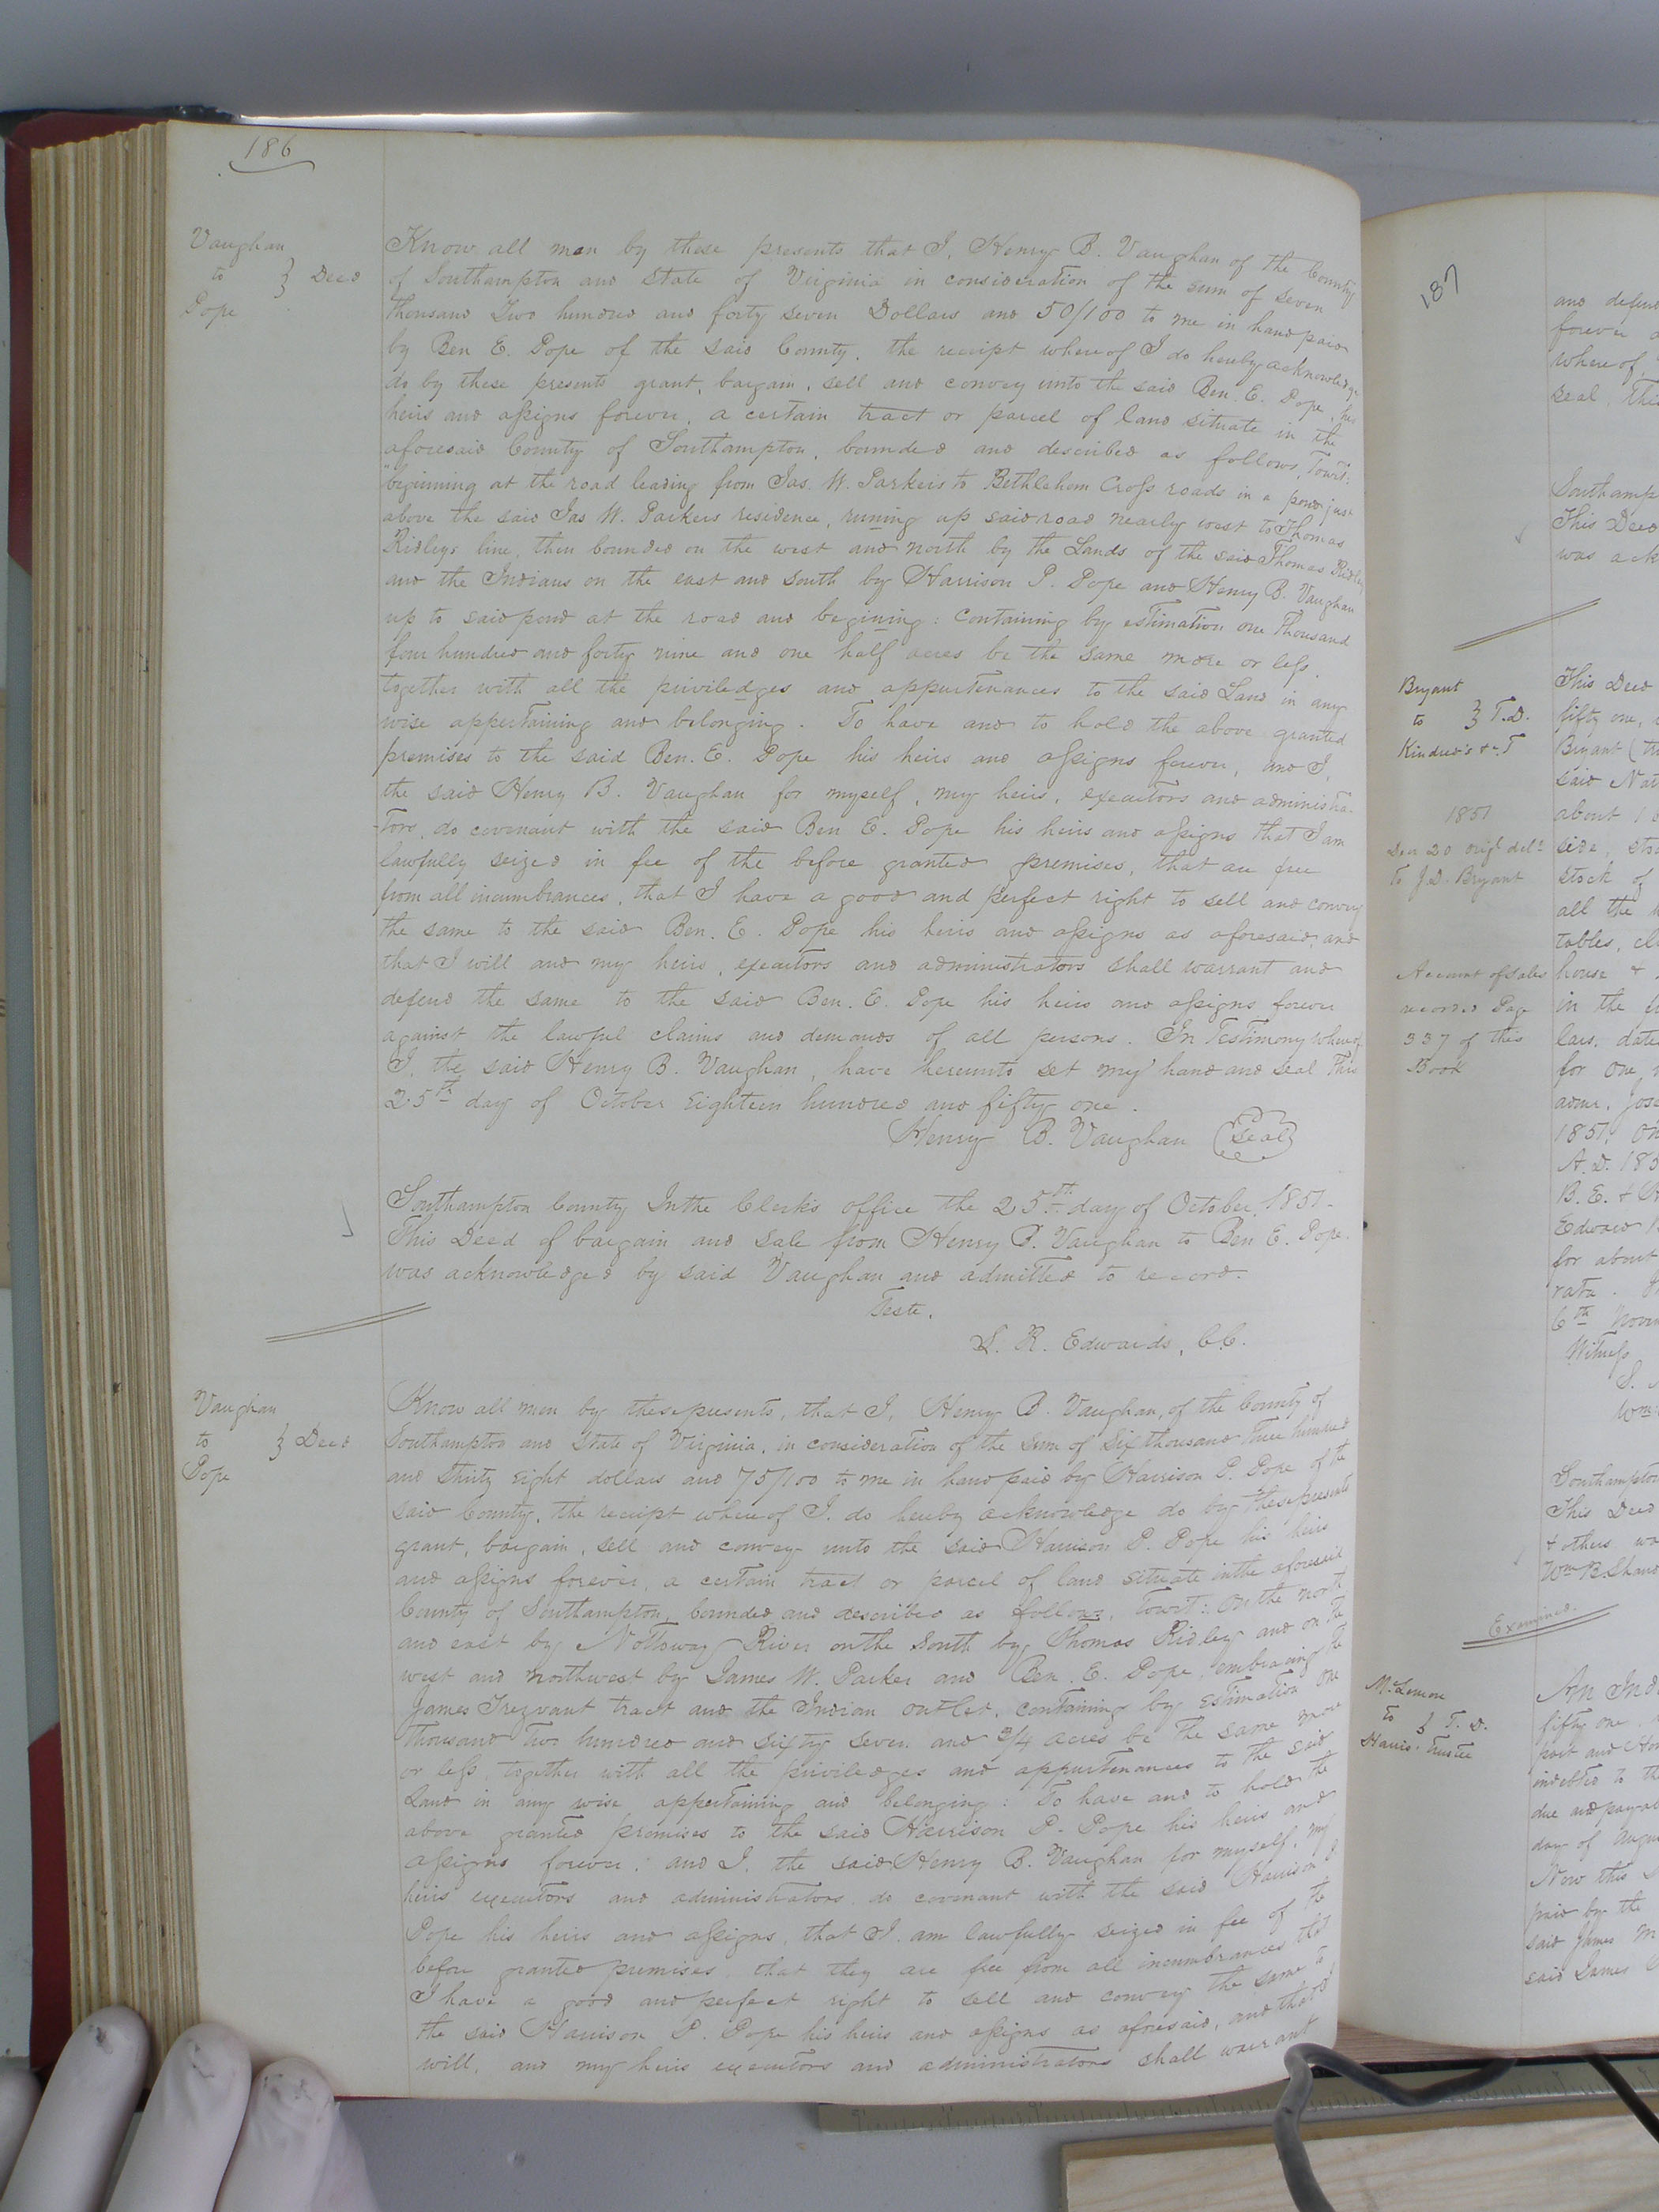 186
Vaughan
to } Deed
Pope
Know all men by these presents that I, Henry B. Vaughan of the County
of Southampton and State of Virginia in consideration of the sum of seven
thousand Two hundred and forty seven Dollars and 50/100 to me in hand paid
by Ben E. Pope of the said County, the receipt whereof I do hereby acknowledge
do by these presents grant, bargain, sell and convey unto the said Ben. E. Pope, his
heirs and assigns forever, a certain tract or parcel of land situate in the
aforesaid County of Southampton, bounded and described as follows, Towit:
"beginning at the road leading from Jas. W. Parkers to Bethlehem Cross roads in a pond just
above the said Jas W. Parkers residence, runing up said road nearly west to Thomas
Ridleys line, then bounded on the west and north by the Lands of the said Thomas Ridley
and the Indians on the east and south by Harrison P. Pope and Henry B. Vaughan
up to said pond at the road and begining: containing by estimation one Thousand
four hundred and forty nine and one half acres be the same more or less,
together with all the priviledges and appurtenances to the said Land in any
wise appertaining and belonging. To have and to hold the above granted
premises to the said Ben. E. Pope his heirs and assigns forever, and I,
the said Henry B. Vaughan for myself, my heirs, executors and administra-
-tors, do covenant with the said Ben E. Pope his heirs and assigns that I am
lawfully seized in fee of the before granted premises, that are free
from all incumbrances, that I have a good and perfect right to sell and convey
the same to the said Ben. E. Pope his heirs and assigns as aforesaid, and
that I will and my heirs, executors and administrators shall warrant and
defend the same to the said Ben. E. Pope his heirs and assigns forever
against the lawful claims and demands of all persons. In Testimony whereof
I, the said Henry B. Vaughan, have hereunto set my hand and seal this
25th day of October Eighteen hundred and fifty one.
Henry B. Vaughan (Seal)
Southampton County In the Clerk's office the 25th day of October, 1851-
This Deed of bargain and sale from Henry B. Vaughan to Ben E. Pope.
was acknowledged by said Vaughan and admitted to record.
Teste,
L. R. Edwards, C.C.
Vaughan
to } Deed
Pope
Know all men by these presents, that I, Henry B. Vaughan, of the County of
Southampton and State of Virginia, in consideration of the sum of six thousand Three hundred
and Thirty Eight dollars and 75/100 to me in hand paid by Harrison P. Pope of the
said County, the receipt whereof I. do hereby acknowledge do by these presents
grant, bargain, sell and convey unto the said Harrison P. Pope his heirs
and assigns forever, a certain tract or parcel of land situate in the aforesaid
County of Southampton, bounded and described as follows, Towit: On the north
and east by Nottoway River on the South by Thomas Ridley and on the
west and northwest by James W. Parker and Ben. E. Pope, embracing the
James Trezvant tract and the Indian outlet, containing by Estimation One
Thousand Two hundred and sixty seven and 3/4 acres be the same more
or less, together with all the priviledges and appurtenances to the said
Land in any wise appertaining and belonging: To have and to hold the
above granted premises to the said Harrison P. Pope his heirs and
assigns forever; and I, the said Henry B. Vaughan for myself, my
heirs executors and administrators do covenant with the said Harrison P
Pope his heirs and assigns, that I am lawfully seized in fee of the
before granted premises, that they are free from all incumbrances that
I have a good and perfect right to sell and convey the same to
the said Harrison P. Pope his heirs and assigns as aforesaid, and that I
will, and my heirs executors and administrators shall warrant
187
and defend
forever
whereof,
seal this
Southamp
This Deed
was ack
Bryant
to } T.D.
Kindred's
1851
20 origl deld
to J.D. Bryant
Account of sales
recorded Page
337 of this
Book
This Deed
fifty one,
Bryant (
said Nat
about
side,
stock of
all the
tables,
house &
in the
lars, date
for One
admr. Jos
1851. On
A.D. 185
B. E. &
Edward
for about
rata.
6th Novem
Witness
Southampton
This Deed
& others wa
Wm B. Shand
Examined.
McLemore
to } T. D.
Harris. Trustee
An Inde
fifty one
part and
indebted to the
due and payab
day of Augu
Now this
paid by the
said James M
said James